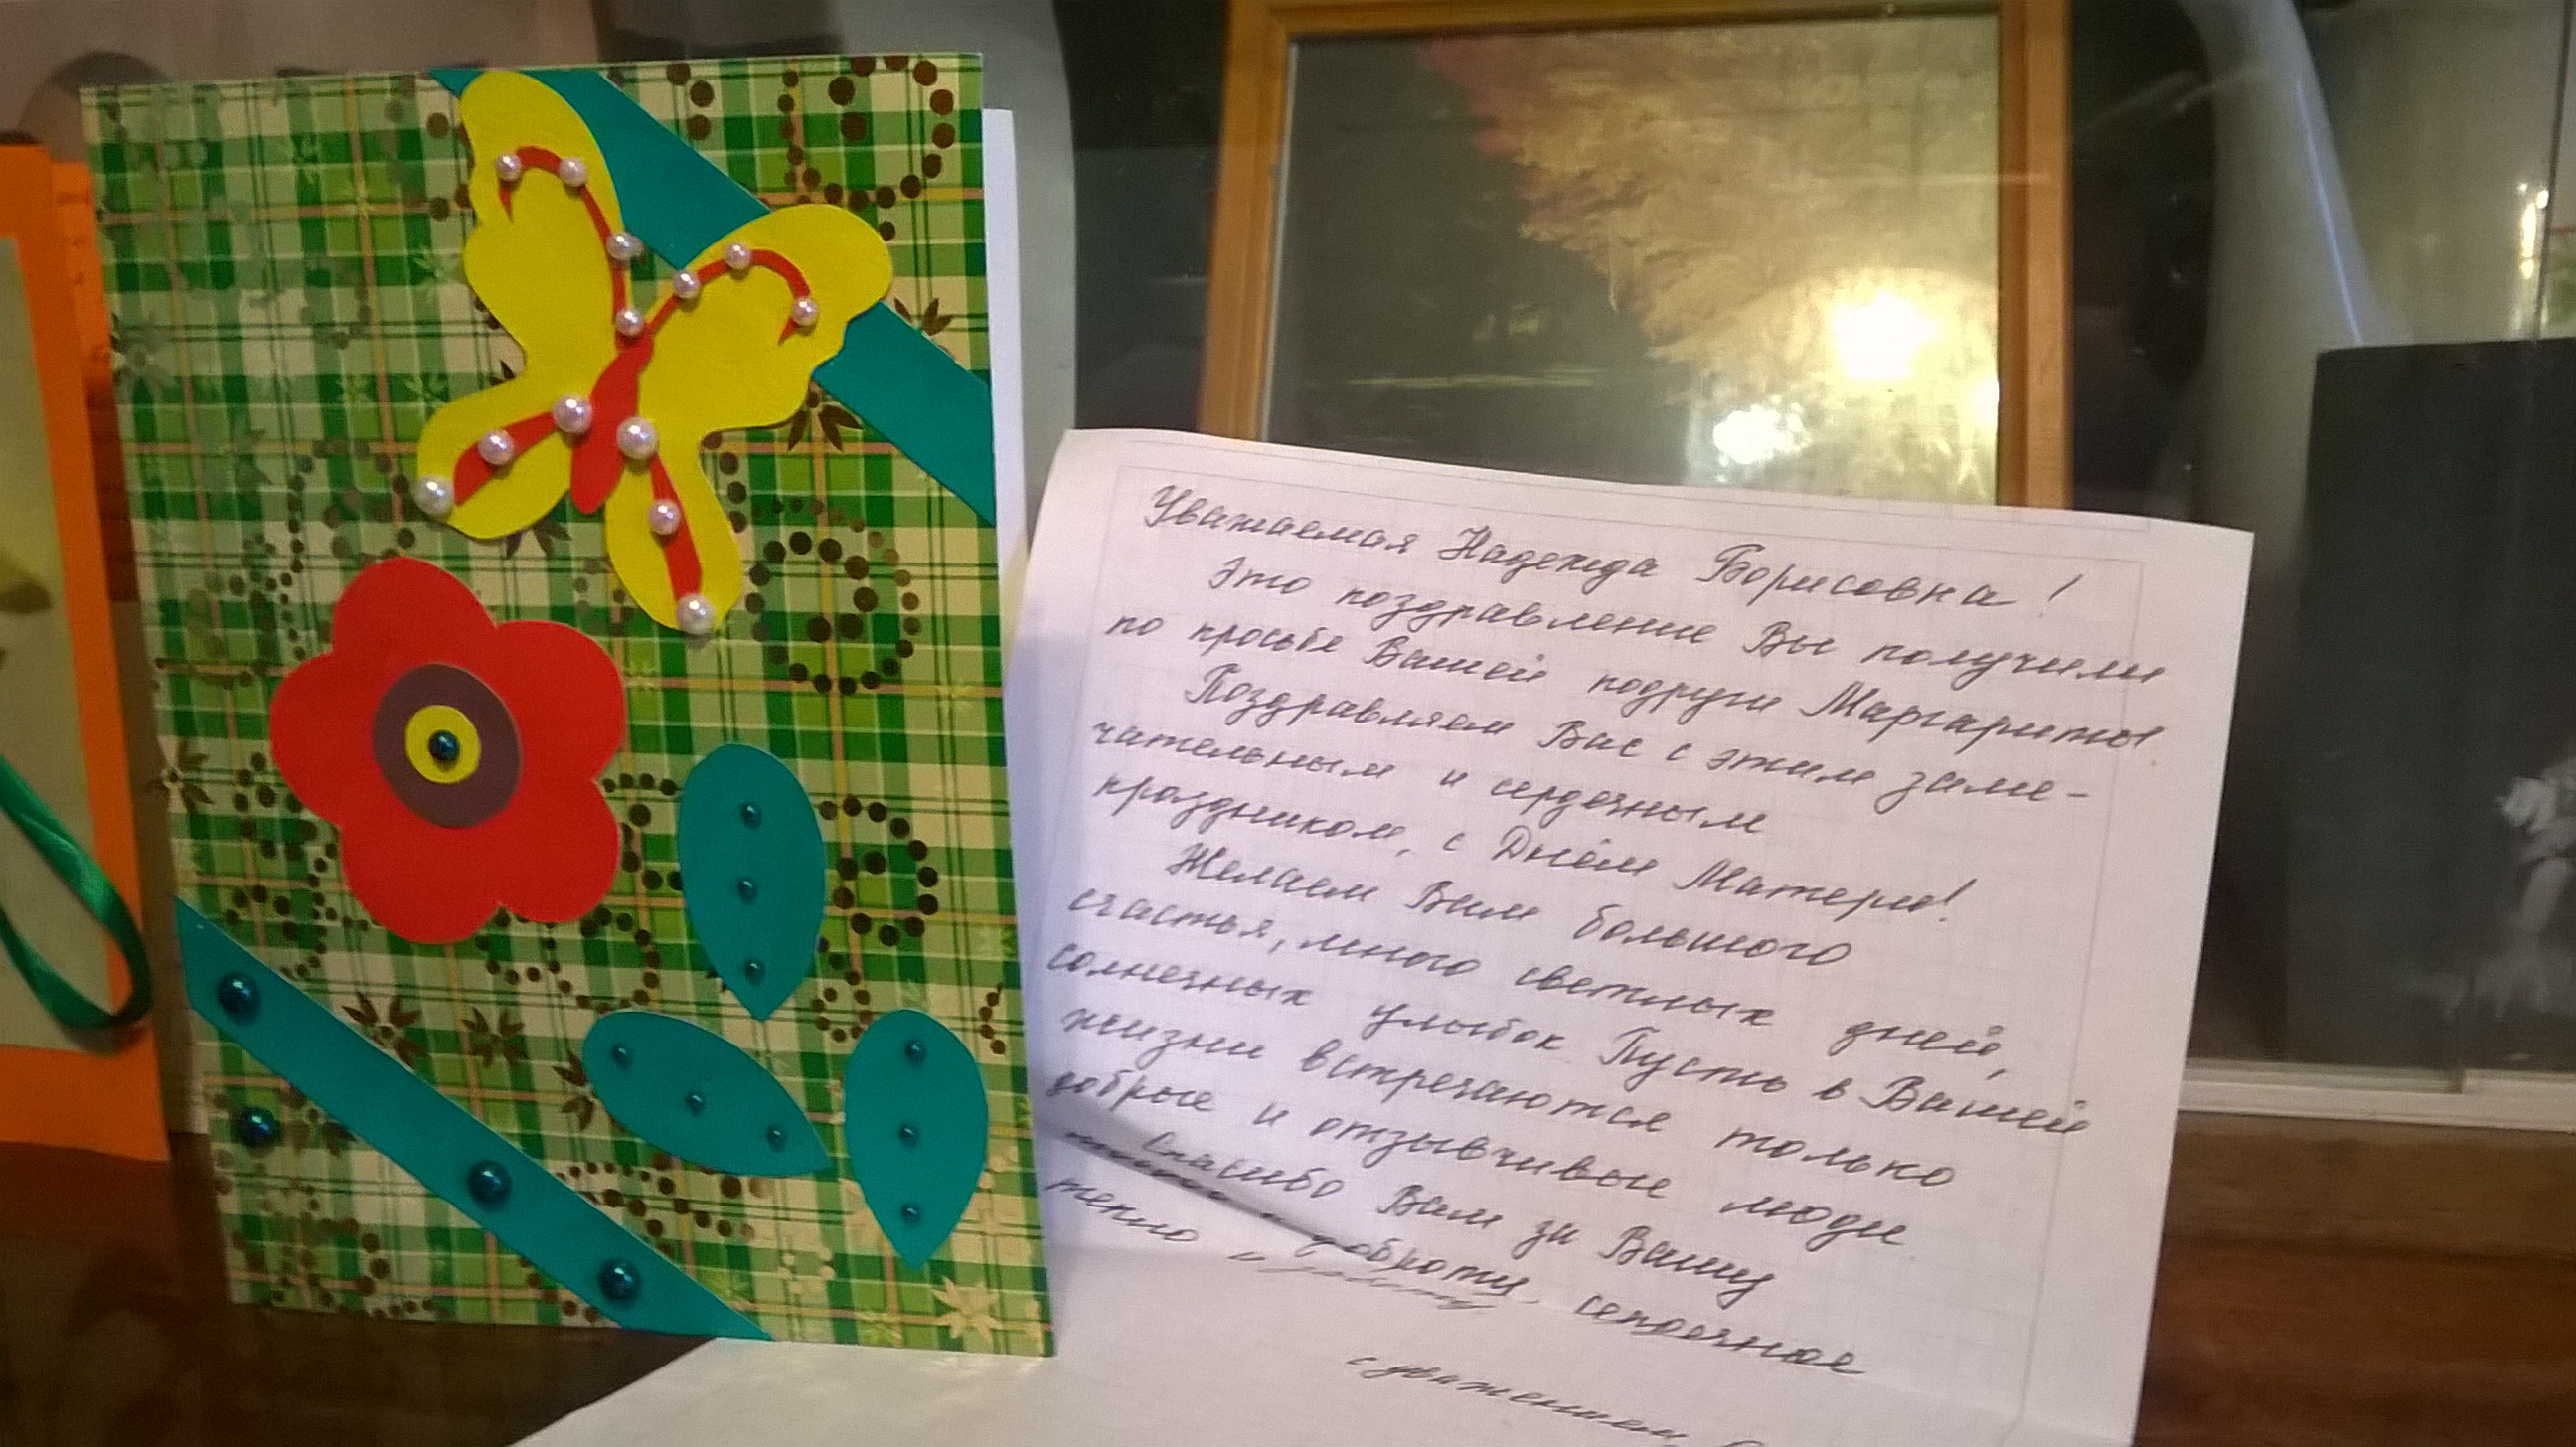 Уважаемая Надежда Борисовна!
Это поздравление Вы получили
по просьбе Вашей подруги Маргариты
Поздравляем Вас с этим заме-
чательным и сердечным
праздником, с Днём Матери!
Желаем Вам большого
счастья, много светлых дней,
солнечных улыбок Пусть в Вашей
жизни встречаются только
добрые и отзывчивые люди.
Спасибо Вам за Вашу
доброту, сердечное
тепло и
с уважением,